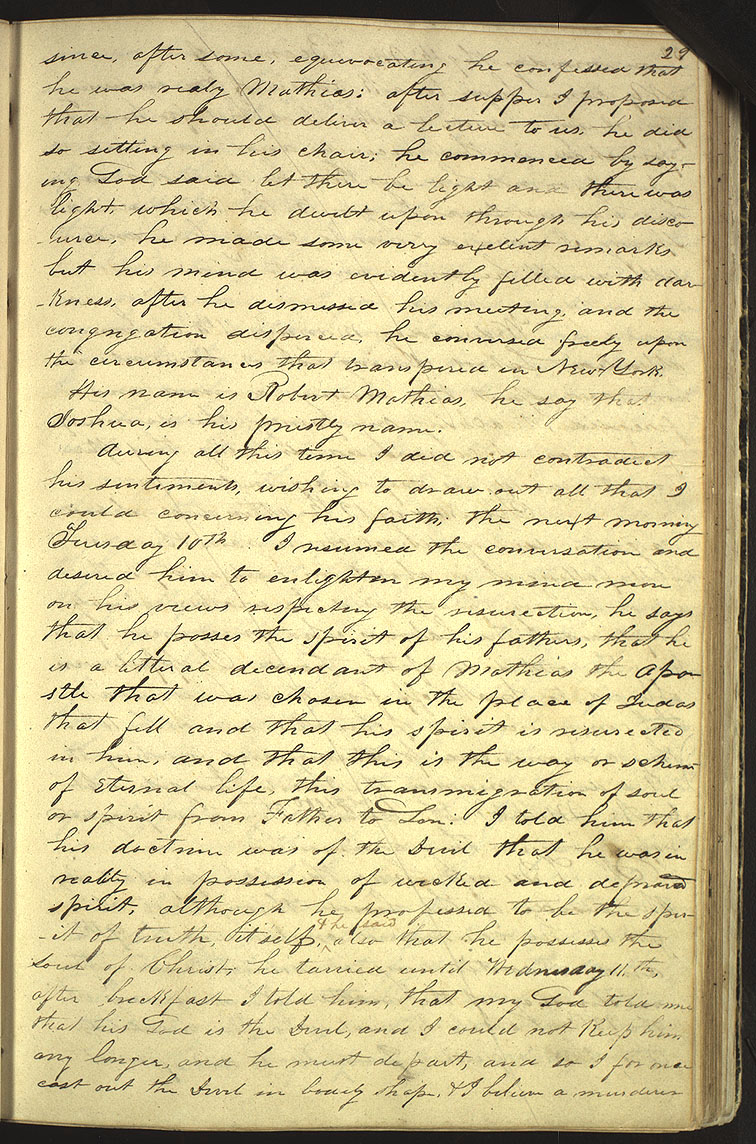 29
since, after some, equivocating he confessed that
he was realy Mathias: after supper I proposed
that he should deliver a lecture to us. he did
so setting in his chair; he commenced by say-
ing God said let there be light and there was
light, which he dwelt upon through his disco-
-urce, he made some very exelent remarks
but his mind was evidently filled with dar-
-kness, after he dismissed his meeting, and the
congrigation disperced, he conversed freely upon
the circumstances that transpired in New York.
His name is Robert Mathias, he say that
Joshua, is his priestly name.
during all this time I did not contradict
his sentiments, wishing to draw out all that I
could concerning his faith. the next morning
Tuesday 10th I resumed the conversation and
desired him to enlighten my mind more
on his views respecting the resurection, he says
that he posses the spirit of his fathers, that he
is a litteral decendant of Mathias the Apo-
stle that was chosen in the place of Judas
that fell and that his spirit is resurected
in him, and that this is the way or schem
of eternal life, this transmigration of soul
or spirit from Father to Son: I told him that
his doctrine was of the Devil that he was in
reality in possession of wicked and depraved
spirit, although he professed to be the spir-
& he said
-it of truth, itself, also that he possesses the
soul of Christ, he tarried until Wednesday 11th,
after breckfast I told him, that my God told me
that his God is the Devil, and I could not keep him
any longer, and he must depart, and so I for once
cast out the Devil in bodily shape, & I believe a murderer